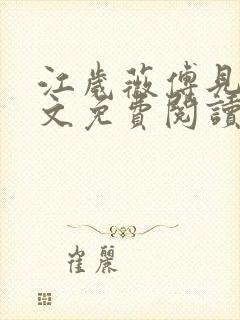 江歲薇傅見
文免費閱讀
崔麗